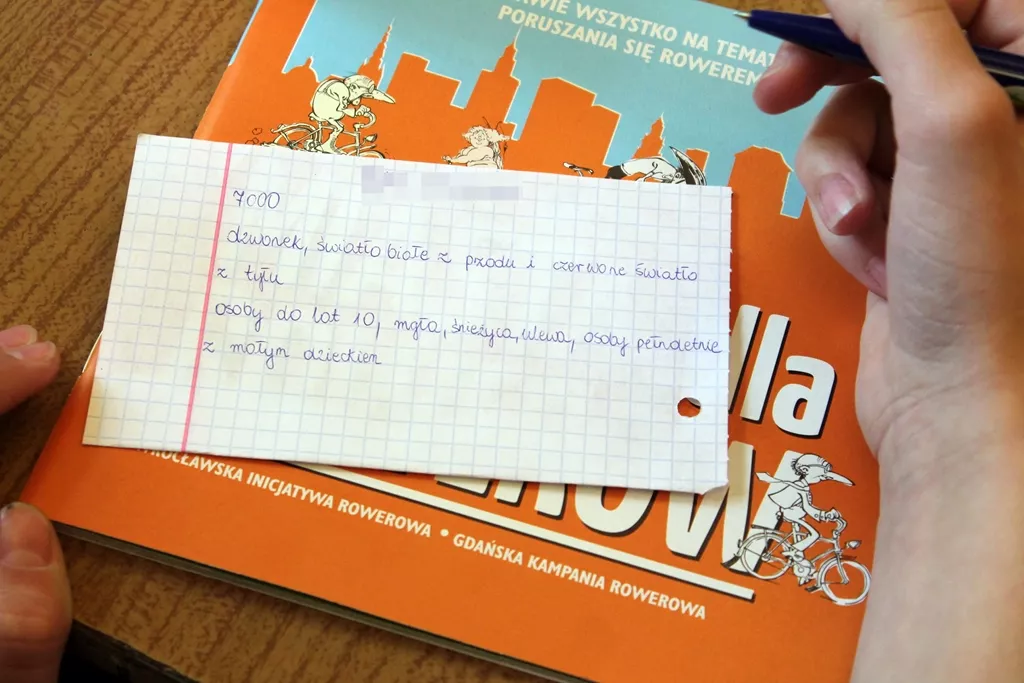 AWIE WSZYSTKO NA TEMAT
PORUSZANIA SIĘ ROWEREM
7000
dzwonek, światło białe z przodu i czerwone światło
z tyłu
osoby do lat 10, mgła, śnieżyca, ulewa, osoby pełnoletnie
z małym dzieckiem
dla
WROCŁAWSKA INICJATYWA ROWEROWA • GDAŃSKA KAMPANIA ROWEROWA